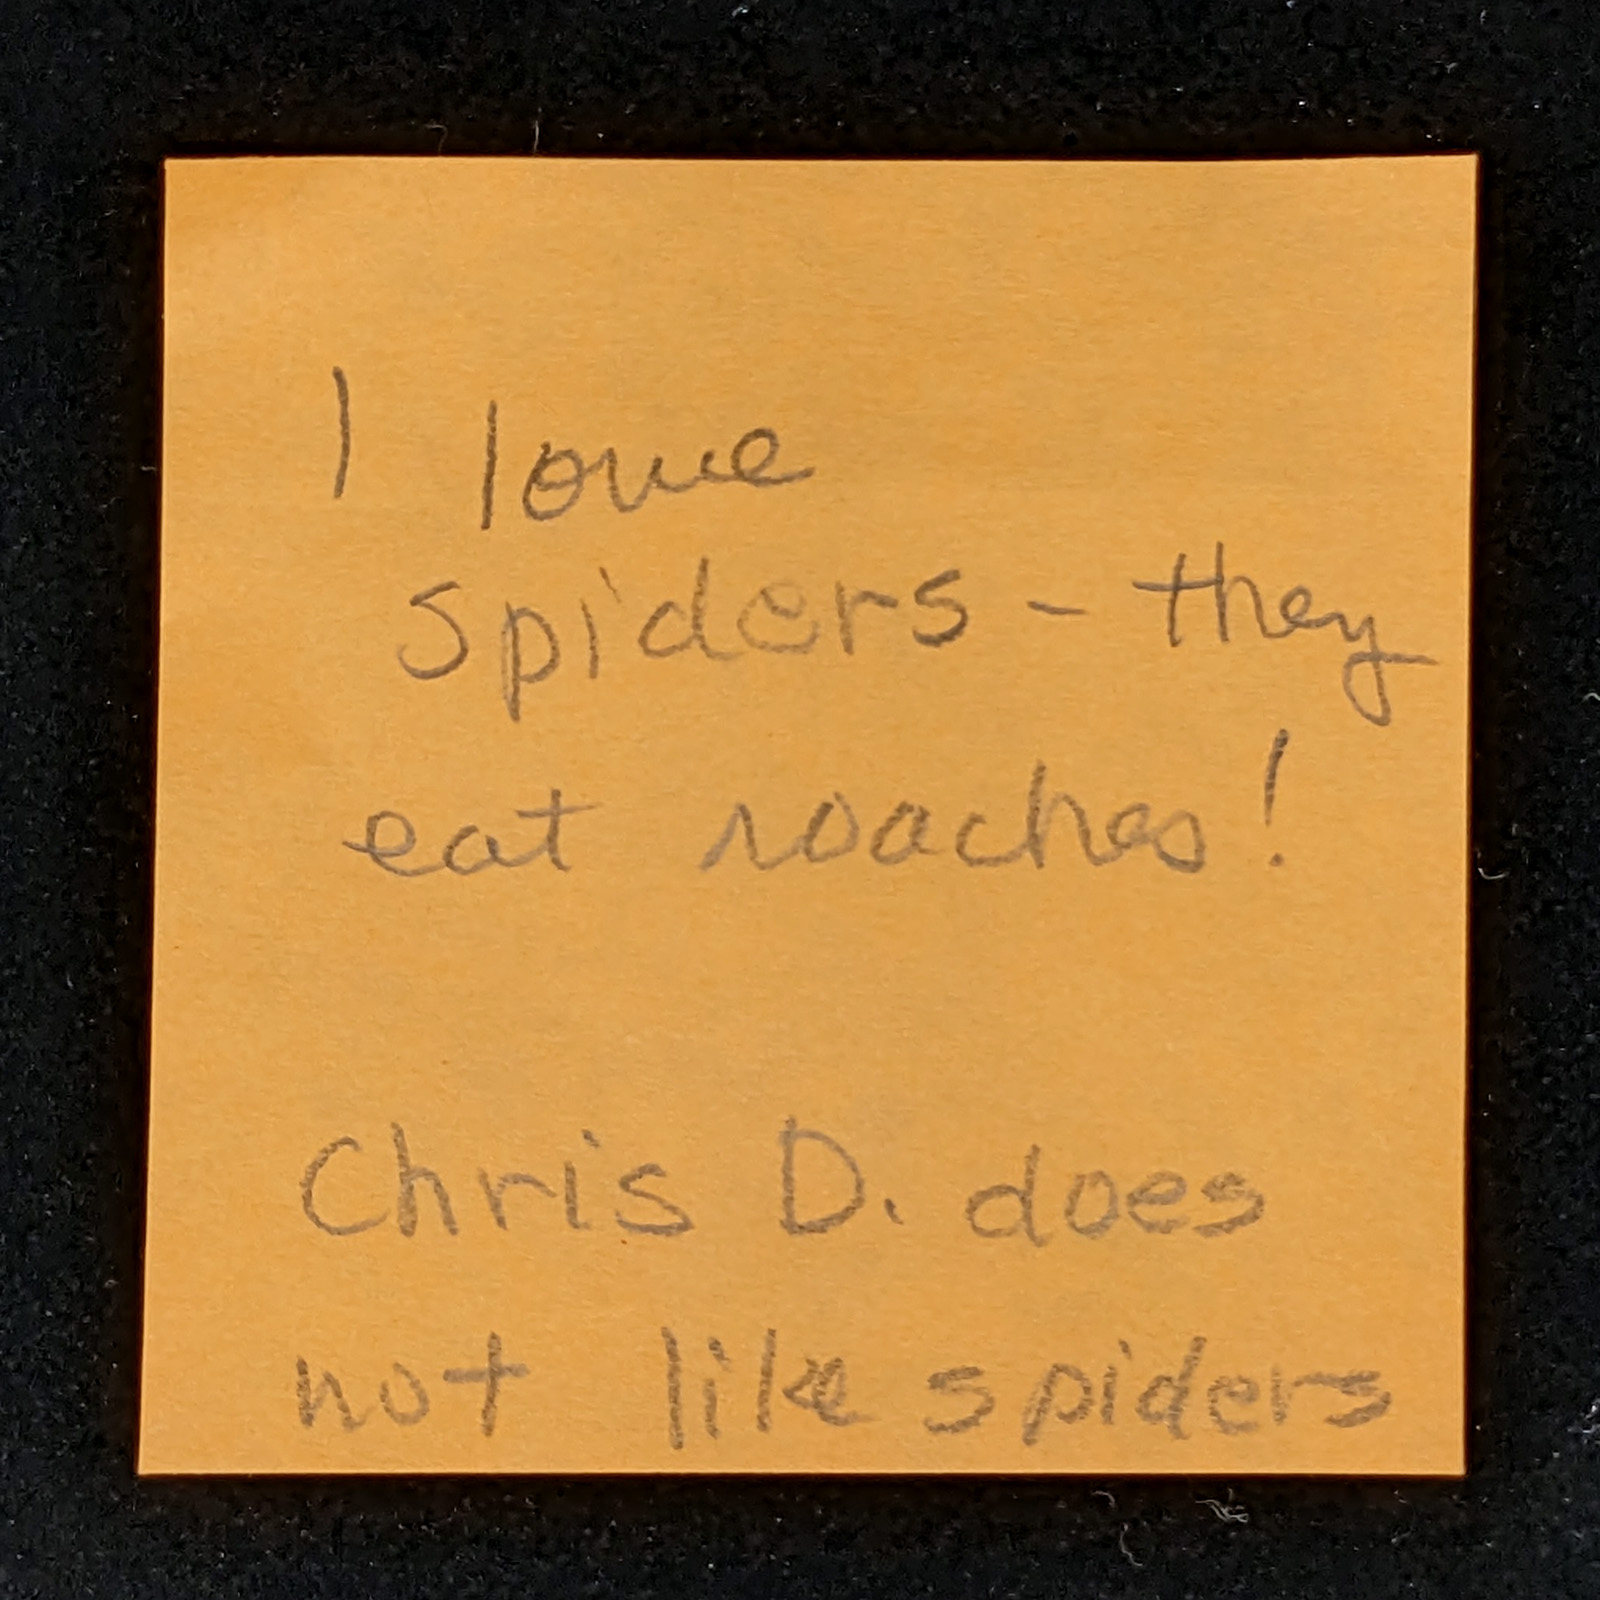 I love
spiders - they
eat roaches!
Chris D. does
not like spiders